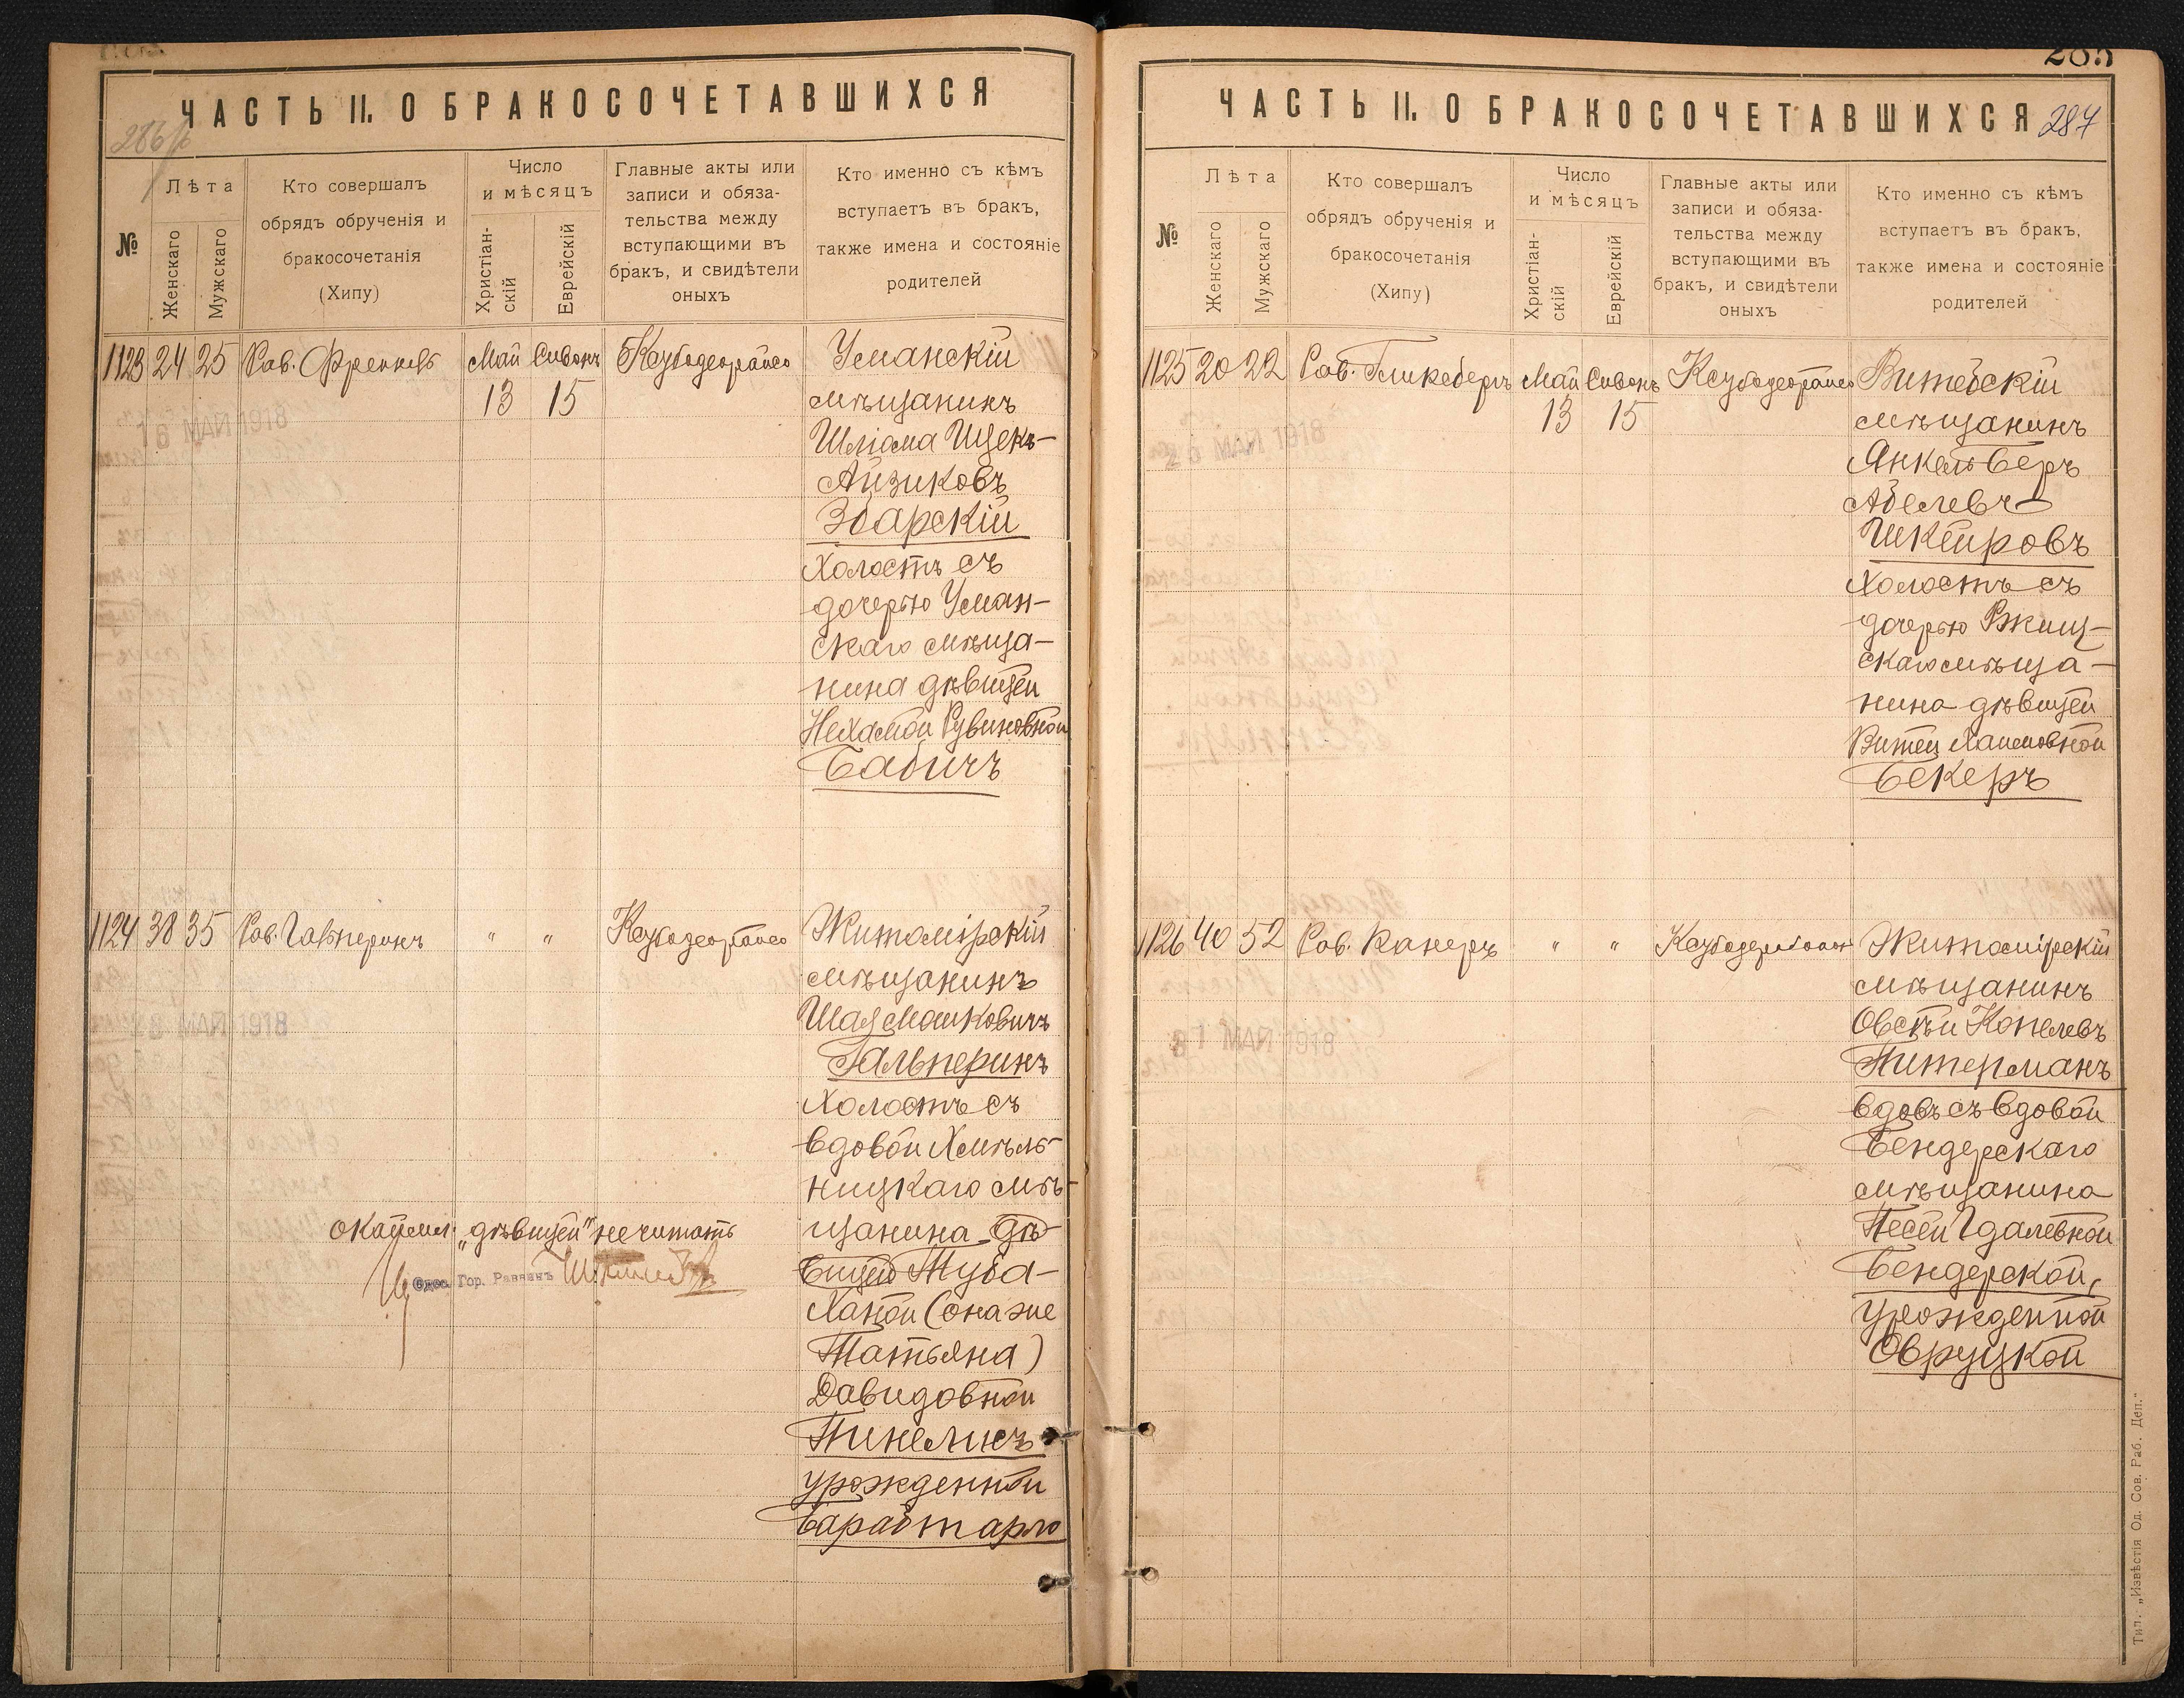 ЧАСТЬ II. О БРАКОСОЧЕТАВШИХСЯ
№
Лѣта
Женскаго
Мужскаго
Кто совершалъ
обрядъ обрученія и
бракосочетанія
(Хипу)
Число
и мѣсяцъ
Христіан-
скій
Еврейскій
Главные акты или
записи и обяза-
тельства между
вступающими въ
бракъ, и свидѣтели
оныхъ
Кто именно съ кѣмъ
вступаетъ въ бракъ,
также имена и состояніе
родителей
1123 24 25 Рав. Френкель Май Сивонъ
13 15
Уманскій
мѣщанинъ
Шліома Ицек-
Айзиковъ
Збарскій
холостъ съ
дочерью Уман-
скаго мѣща-
нина дѣвицей
Нехамой Рувиновной
Бабичъ
16 МАЙ 1918
1124 38 35 Рав. Гальперинъ " "
Житомірскій
мѣщанинъ
Шая Мошковичъ
Гальперинъ
холостъ съ
вдовой Хмѣль-
ницкаго мѣ-
щанина дѣ-
вицей Туба-
Ханой (она же
Татьяна)
Давидовной
Пинелисъ
урожденной
Барабтарло
МАЙ 1918
„дѣвицей" не читать
Одес. Гор. Раввинъ
ЧАСТЬ II. О БРАКОСОЧЕТАВШИХСЯ
287
№
Лѣта
Женскаго
Мужскаго
Кто совершалъ
обрядъ обрученія и
бракосочетанія
(Хипу)
Число
и мѣсяцъ
Христіан-
скій
Еврейскій
Главные акты или
записи и обяза-
тельства между
вступающими въ
бракъ, и свидѣтели
оныхъ
Кто именно съ кѣмъ
вступаетъ въ бракъ,
также имена и состояніе
родителей
1125 20 22 Рав. Гликсбергъ Май Сивонъ
13 15
Витебскій
мѣщанинъ
Янкель Беръ
Абелевъ
Шкляровъ
холостъ съ
дочерью Ржищ-
скаго мѣща-
нина дѣвицей
Бекеръ
МАЙ 1918
1126 40 52 Рав. Канеръ " "
Житомірскій
мѣщанинъ
Овсѣй Копелевъ
Питерманъ
вдовъ съ вдовой
Бендерскаго
мѣщанина
Песей Гдалевной
Бендерской,
урожденной
Овруцкой
МАЙ 1918
Тип. „Извѣстія Од. Сов. Раб. Деп."